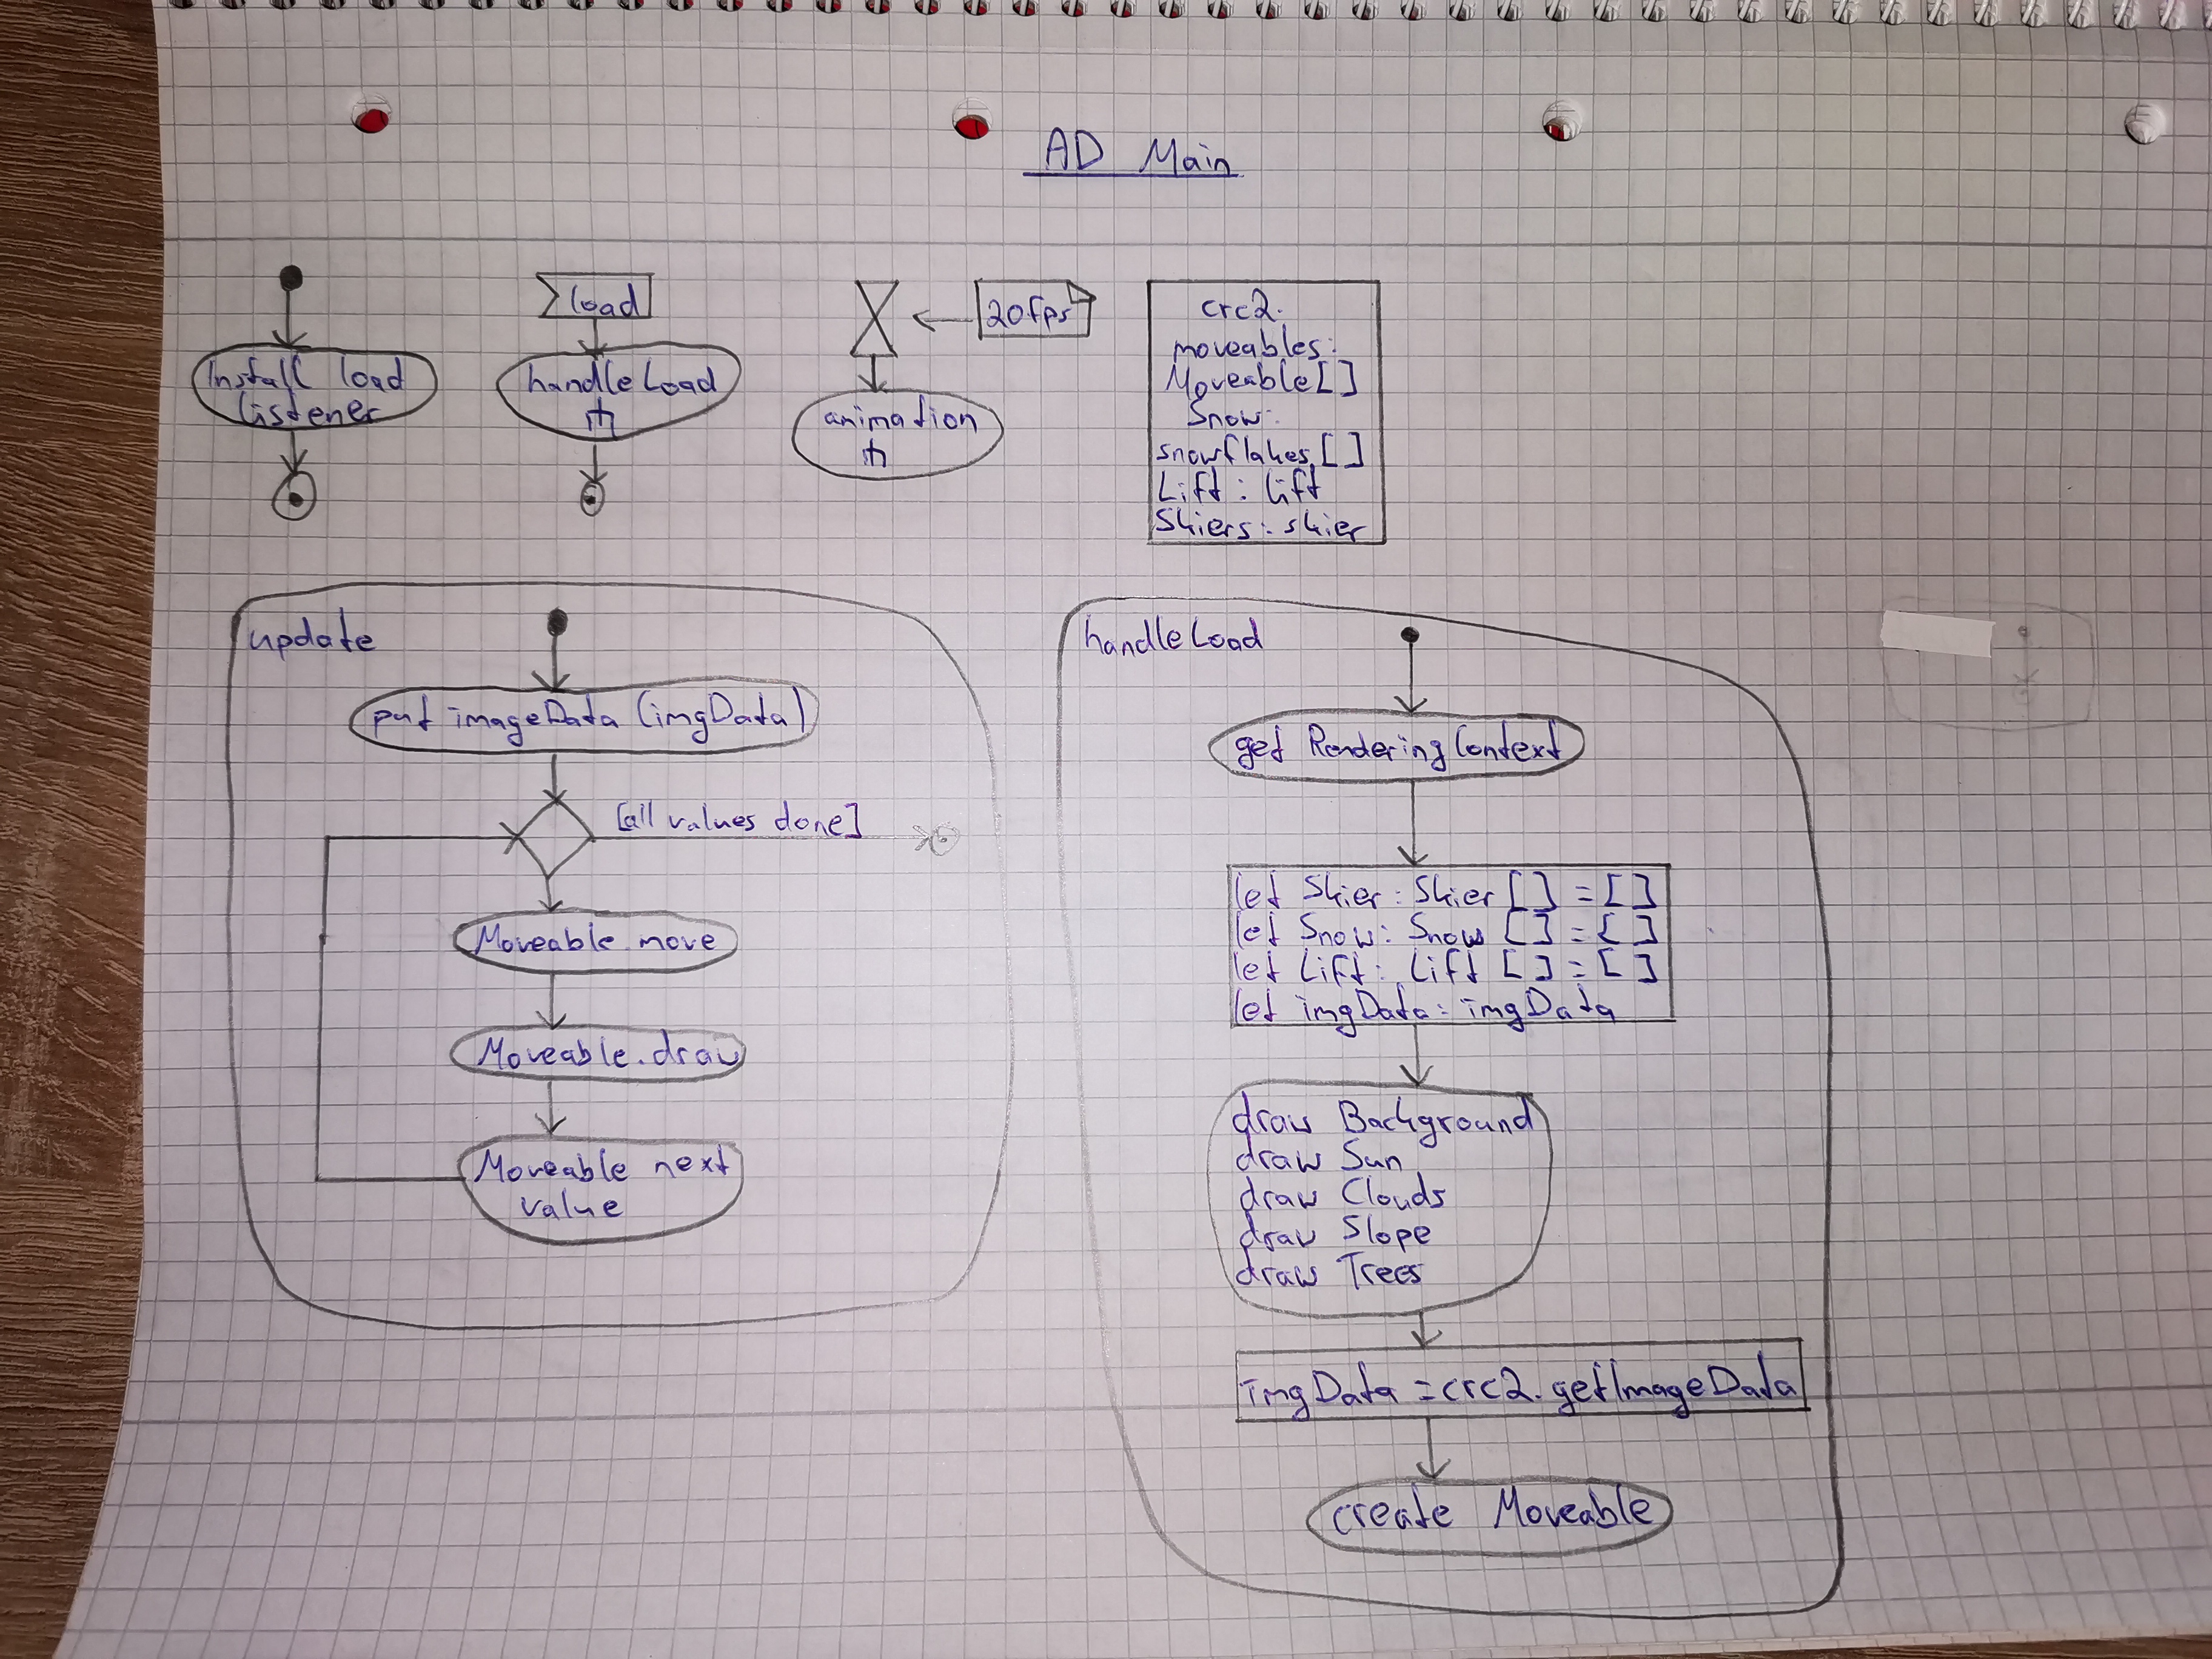 AD Main
Install load
listener
load
handleLoad
animation
20fps
crc2.
moveables:
Moveable[]
Snow:
snowflakes[]
Lift: lift
Skiers: skier
update
put imageData (imgData)
[all values done]
Moveable move
Moveable.draw
Moveable next
value
handleLoad
get RenderingContext
let Skier: Skier [] = []
let Snow: Snow [] = []
let Lift: Lift [] = []
let imgData: imgData
draw Background
draw Sun
draw Clouds
draw Slope
draw Trees
imgData = crc2.getImageData
create Moveable